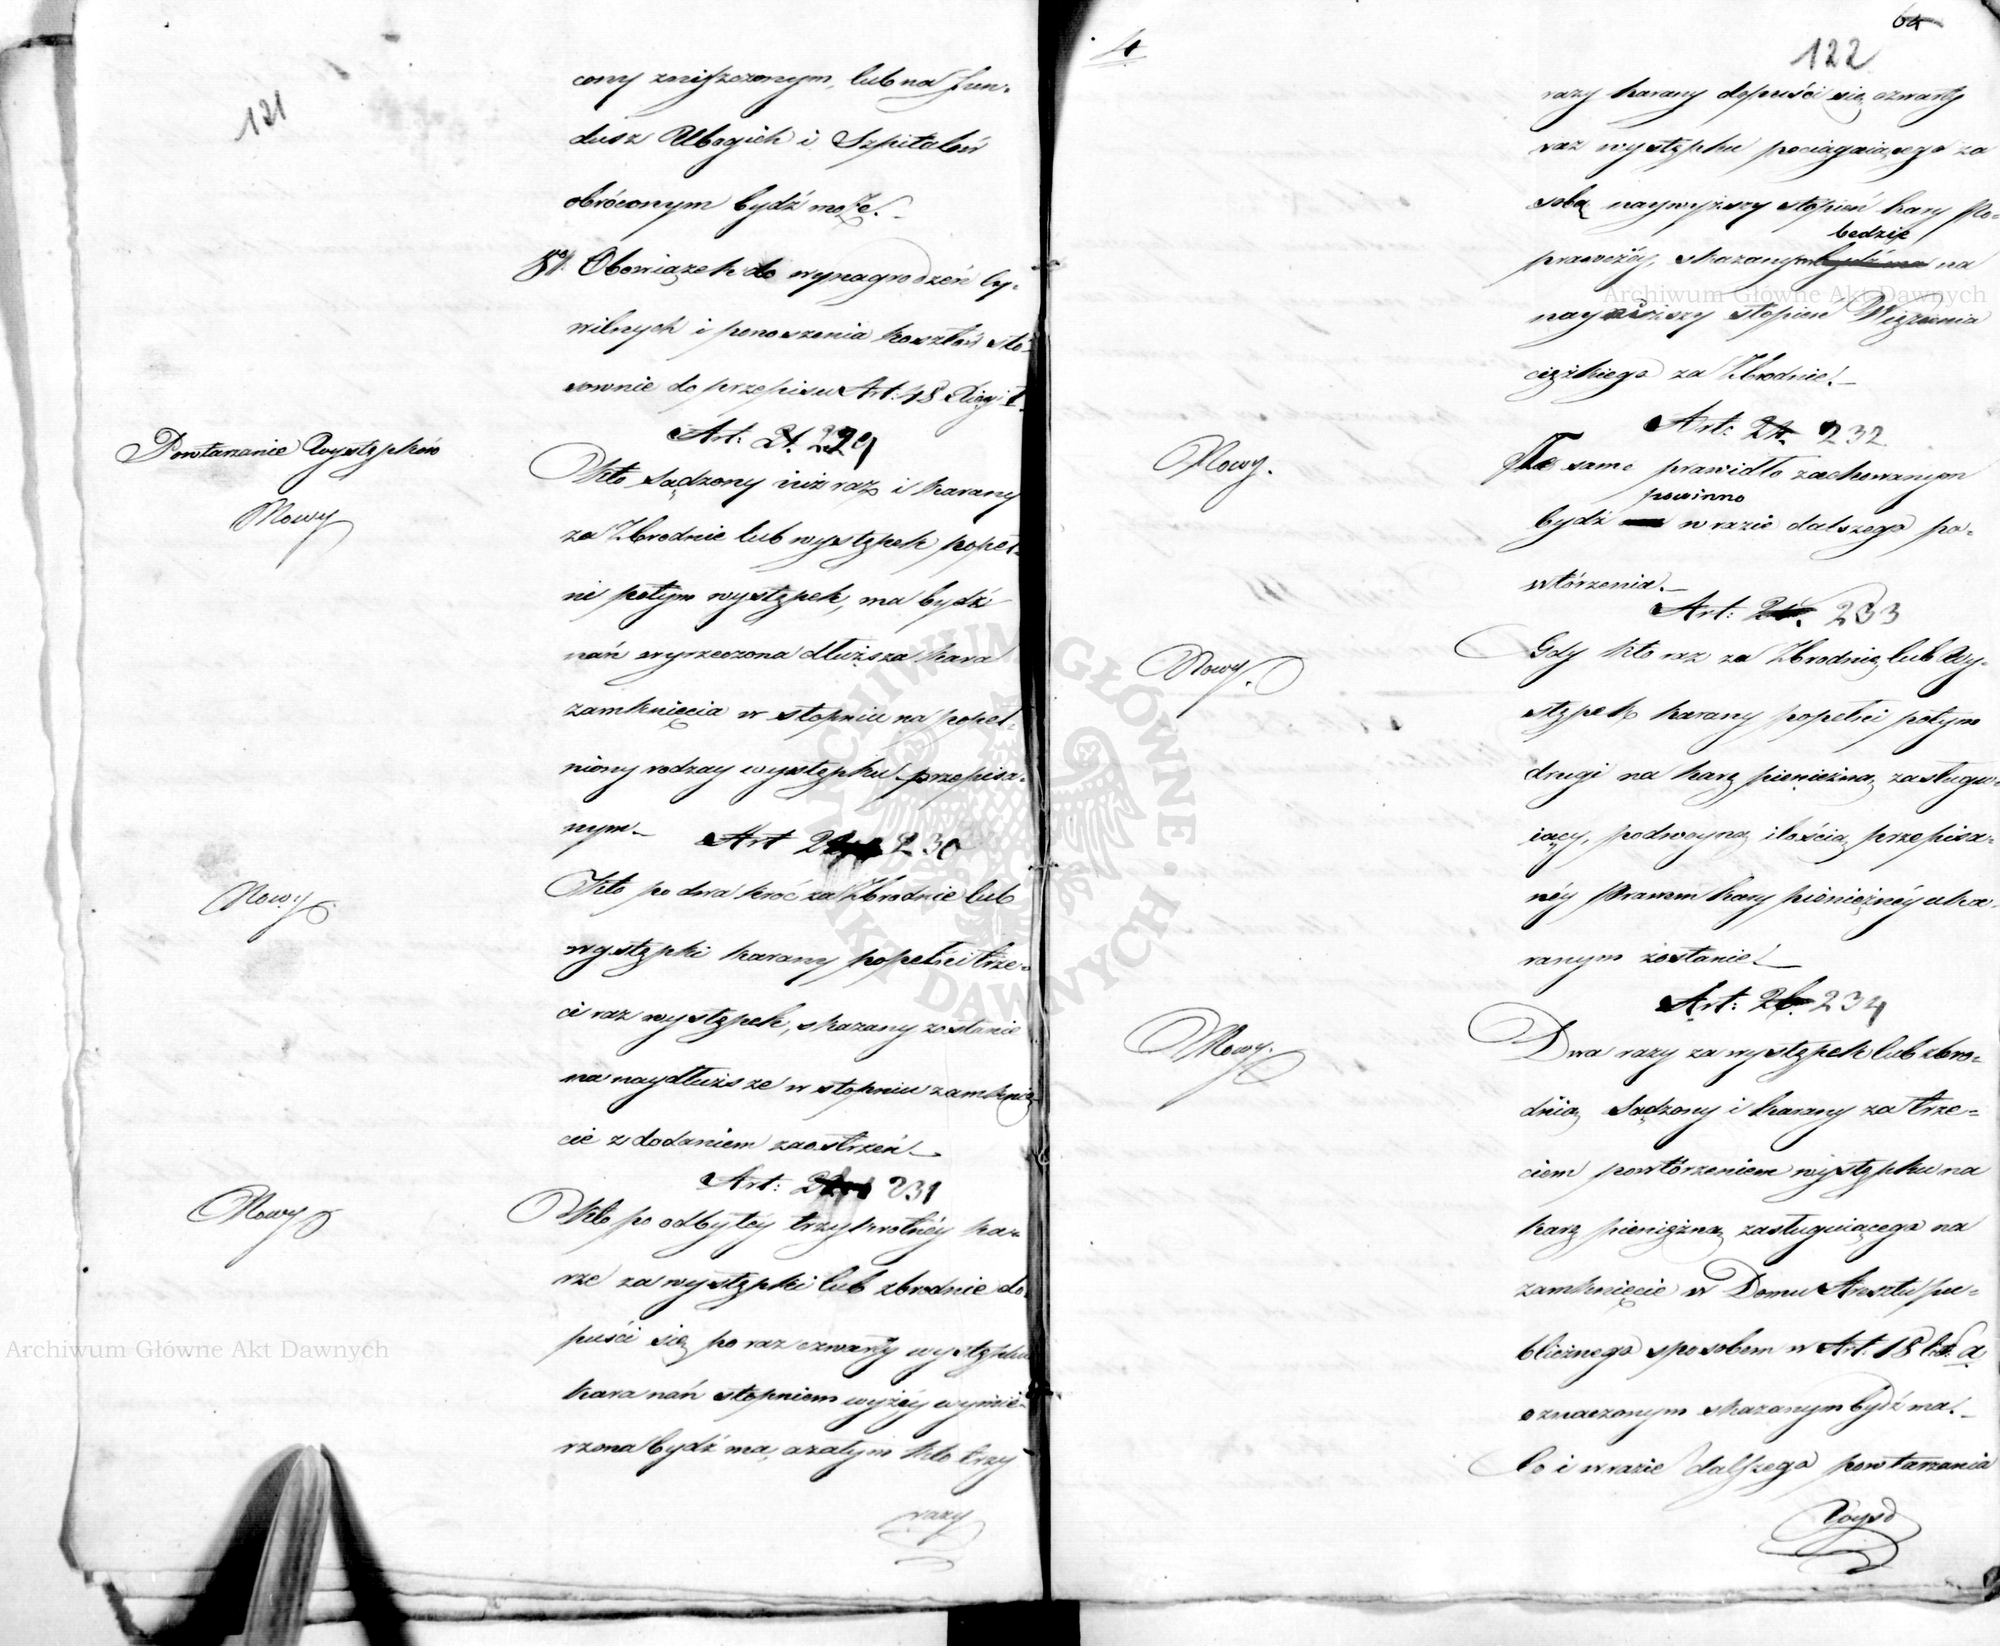 121
cony zniszczonym, lub na fun-
dusz Ubogich i Szpitalów
obróconym bydź może.
8vo. Obowiązek do wynagrodzeń cy-
wilnych i ponoszenia kosztów sto-
sownie do przepisu Art: 48 Xięgi I.
Art: 229
Powtarzanie Występków
Nowy
Kto sądzony iuż raz i karany
za Zbrodnie lub występek popeł-
ni potym występek, ma bydź
nań wyrzeczona dłuższa kara
zamknięcia w stopniu na popeł-
niony rodzay występku przepisa-
nym.
Art 230
Nowy
Kto po dwa kroć za Zbrodnie lub
występki karany popełni trze-
ci raz występek, skazany zostanie
na naydłuższe w stopniu zamknię
cie z dodaniem zaostrzeń.
Art: 231
Nowy
Kto po odbytéy trzykrotnéy ka-
rze za występki lub zbrodnie do
puści się po raz czwarty występku
kara nań stopniem wyżéy wymie-
rzona bydź ma, azatym kto trzy
razy
4
64
122
razy karany dopuści się czwarty
raz występku pociągaiącego za
sobą naywyższy stopień kary Po-
prawczéy, skazany będzie na
nayniższy stopień Więzienia
ciężkiego za Zbrodnie.
Art: 232
Nowy.
Te same prawidło zachowanym
bydź powinno w razie dalszego po-
wtórzenia.
Art: 233
Nowy.
Gdy kto raz za Zbrodnię lub Wy-
stępek karany popełni potym
drugi na karę pieniężną zasługu-
iący, podwoyną ilością przepisa-
néy Prawem kary pieniężnéy uka-
ranym zostanie.
Art: 234
Nowy.
Dwa razy za występek lub zbro-
dnią sądzony i karany za trze-
ciem powtórzeniem występku na
karę pieniężną zasługuiącego na
zamknięcie w Domu Aresztu pu-
blicznego sposobem w Art. 18 lit. a
oznaczonym skazanym bydź ma.
Co i w razie dalszego powtarzania
Archiwum Główne Akt Dawnych
Archiwum Główne Akt Dawnych
ARCHIWUM GŁÓWNE AKT DAWNYCH